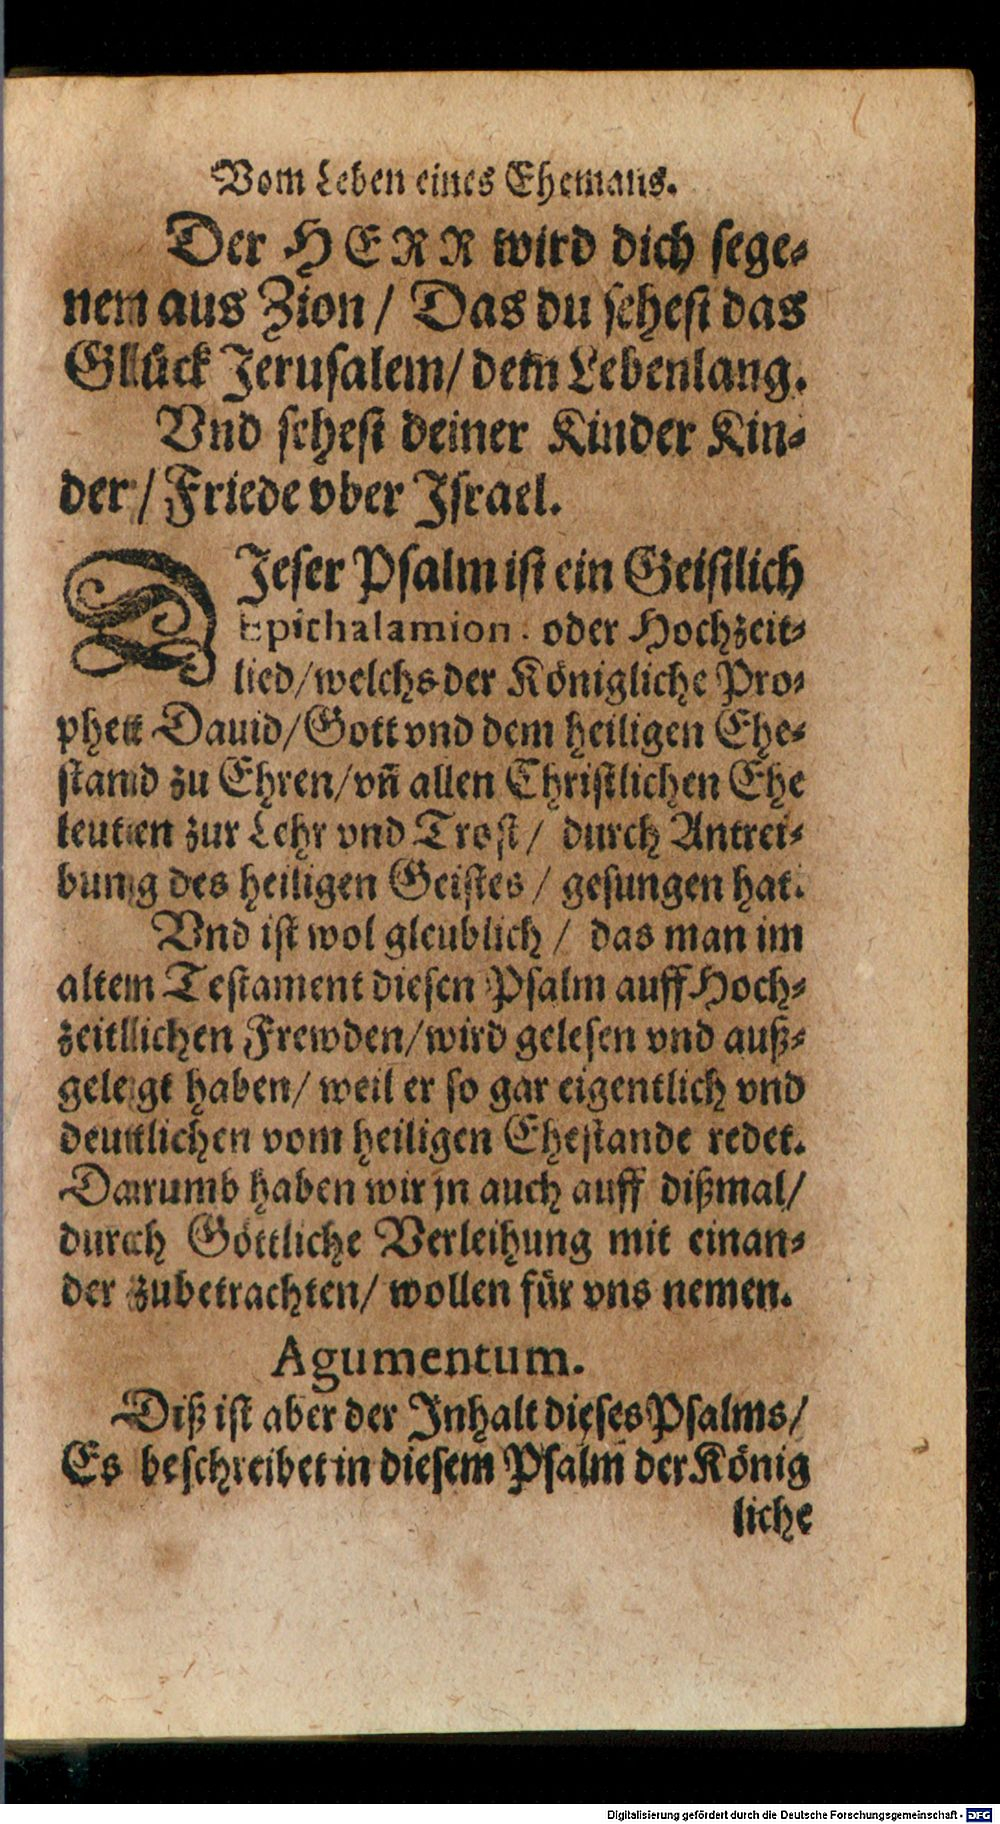 Vom Leben eines Ehemans.
Der HERR wird dich sege-
nen aus Zion / Das du sehest das
Glück Jerusalem / dein Lebenlang.
Vnd sehest deiner Kinder Kin-
der / Friede vber Israel.
DIeser Psalm ist ein Geistlich
Epithalamion. oder Hochzeit-
lied / welchs der Königliche Pro-
phet Dauid / Gott vnd dem heiligen Ehe-
stand zu Ehren / vn̄ allen Christlichen Ehe
leuten zur Lehr vnd Trost / durch Antrei-
bung des heiligen Geistes / gesungen hat.
Vnd ist wol gleublich / das man im
alten Testament diesen Psalm auff Hoch-
zeitlichen Frewden / wird gelesen vnd auß-
gelegt haben / weil er so gar eigentlich vnd
deutlichen vom heiligen Ehestande redet.
Darumb haben wir jn auch auff dißmal /
durch Göttliche Verleihung mit einan-
der zubetrachten / wollen für vns nemen.
Agumentum.
Diß ist aber der Inhalt dieses Psalms /
Es beschreibet in diesem Psalm der König
liche
Digitalisierung gefördert durch die Deutsche Forschungsgemeinschaft - DFG